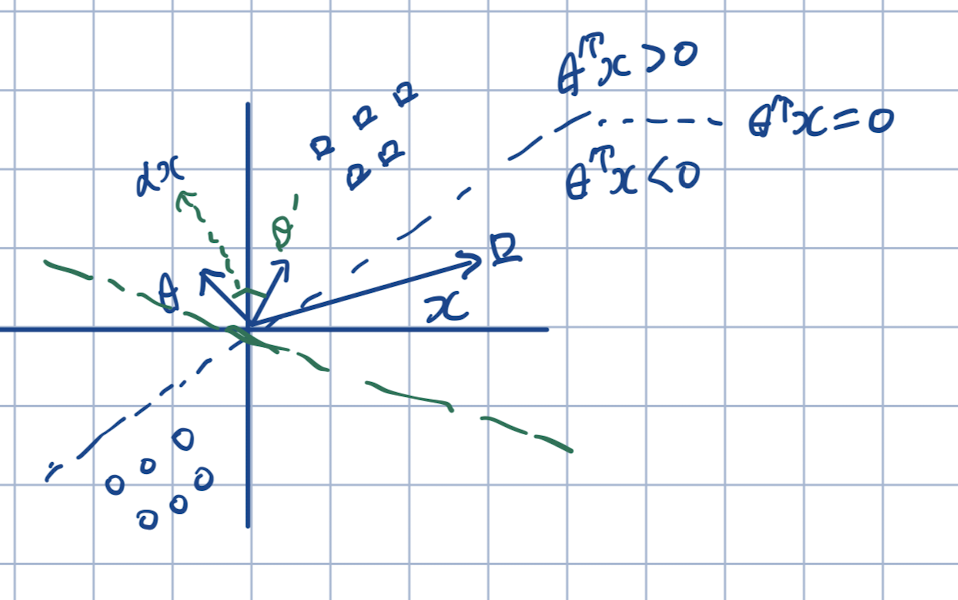 θᵀx > 0
θᵀx = 0
θᵀx < 0
αx
θ'
θ
x